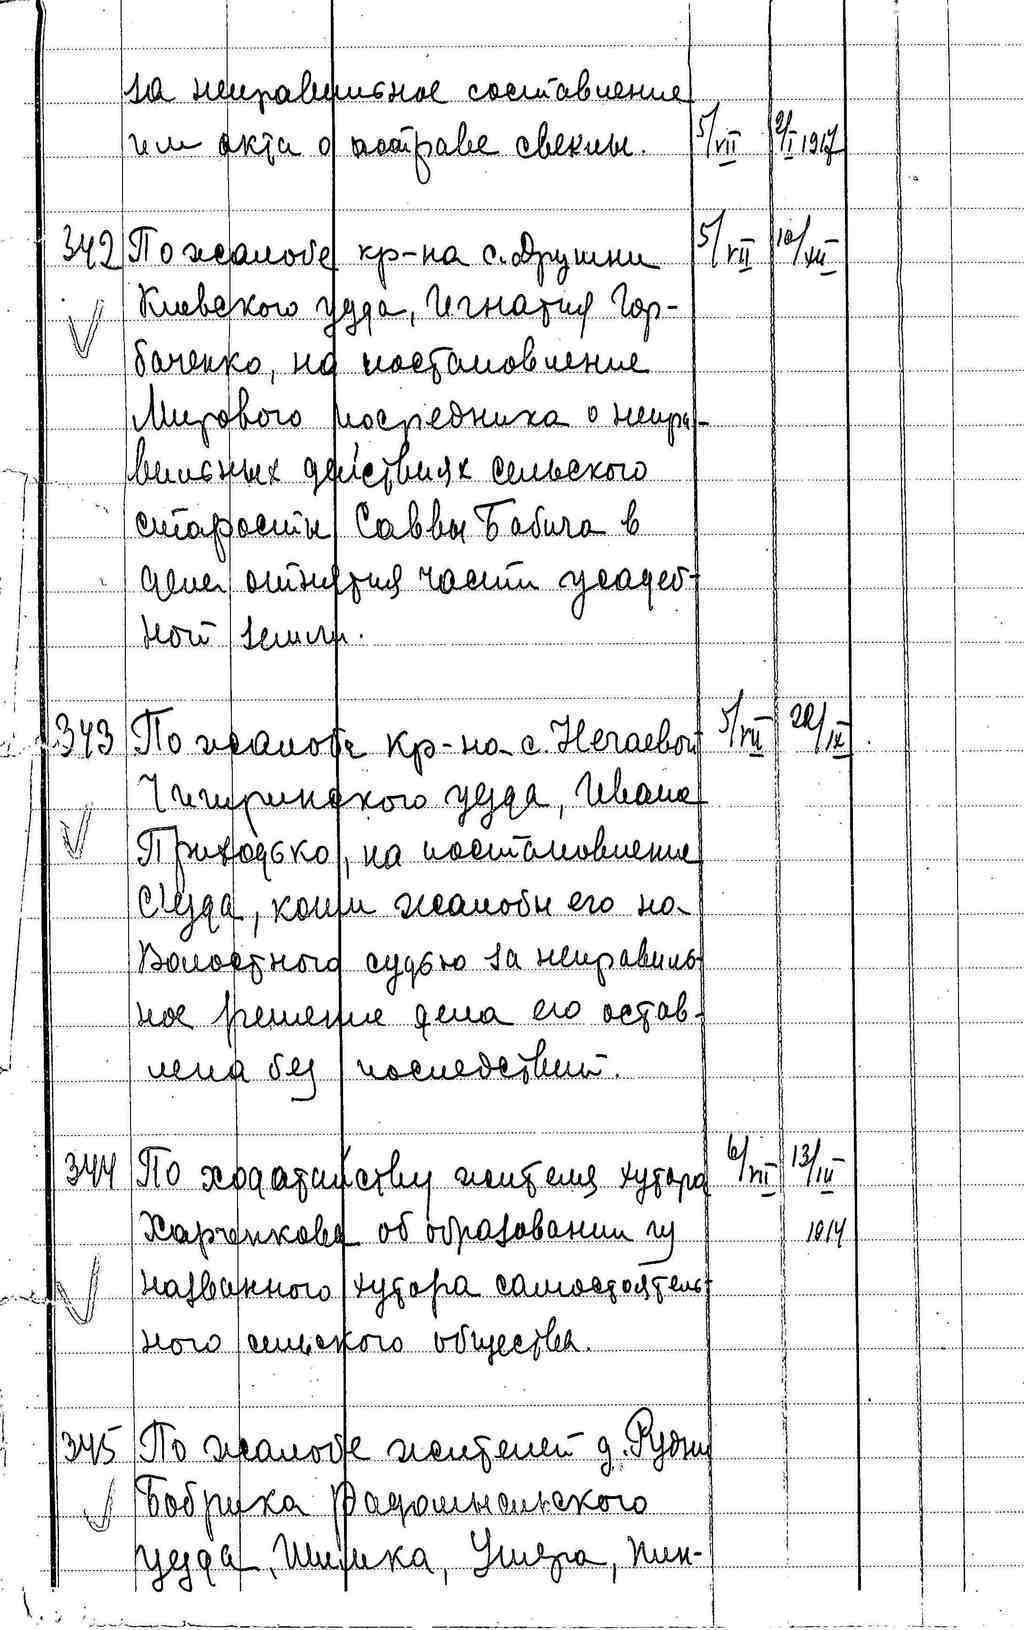 за неправильное составление
им акта о потраве свеклы. 5/VII 2/I 1917
342 По жалобе кр-на с. Друшни 5/VII 10/XII
Киевского уезда, Игнатия Гор-
баченко, на постановление
Мирового посредника о непра-
вильных действиях сельского
старосты Саввы Бабича в
деле отнятия части усадеб-
ной земли.
343 По жалобе кр-на с. Нечаевой 5/VII 22/IX
Чигиринского уезда, Ивана
Приходько, на постановление
С'езда, коим жалобы его на
Волостного судью за неправиль-
ное решение дела его остав-
лена без последствий.
344 По ходатайству жителя хутора 6/VII 13/III
Харченкова об образовании из 1914
названного хутора самостоятель-
ного сельского общества.
345 По жалобе жителей д. Рудни
Бобрика Радомысльского
уезда, Шимка,